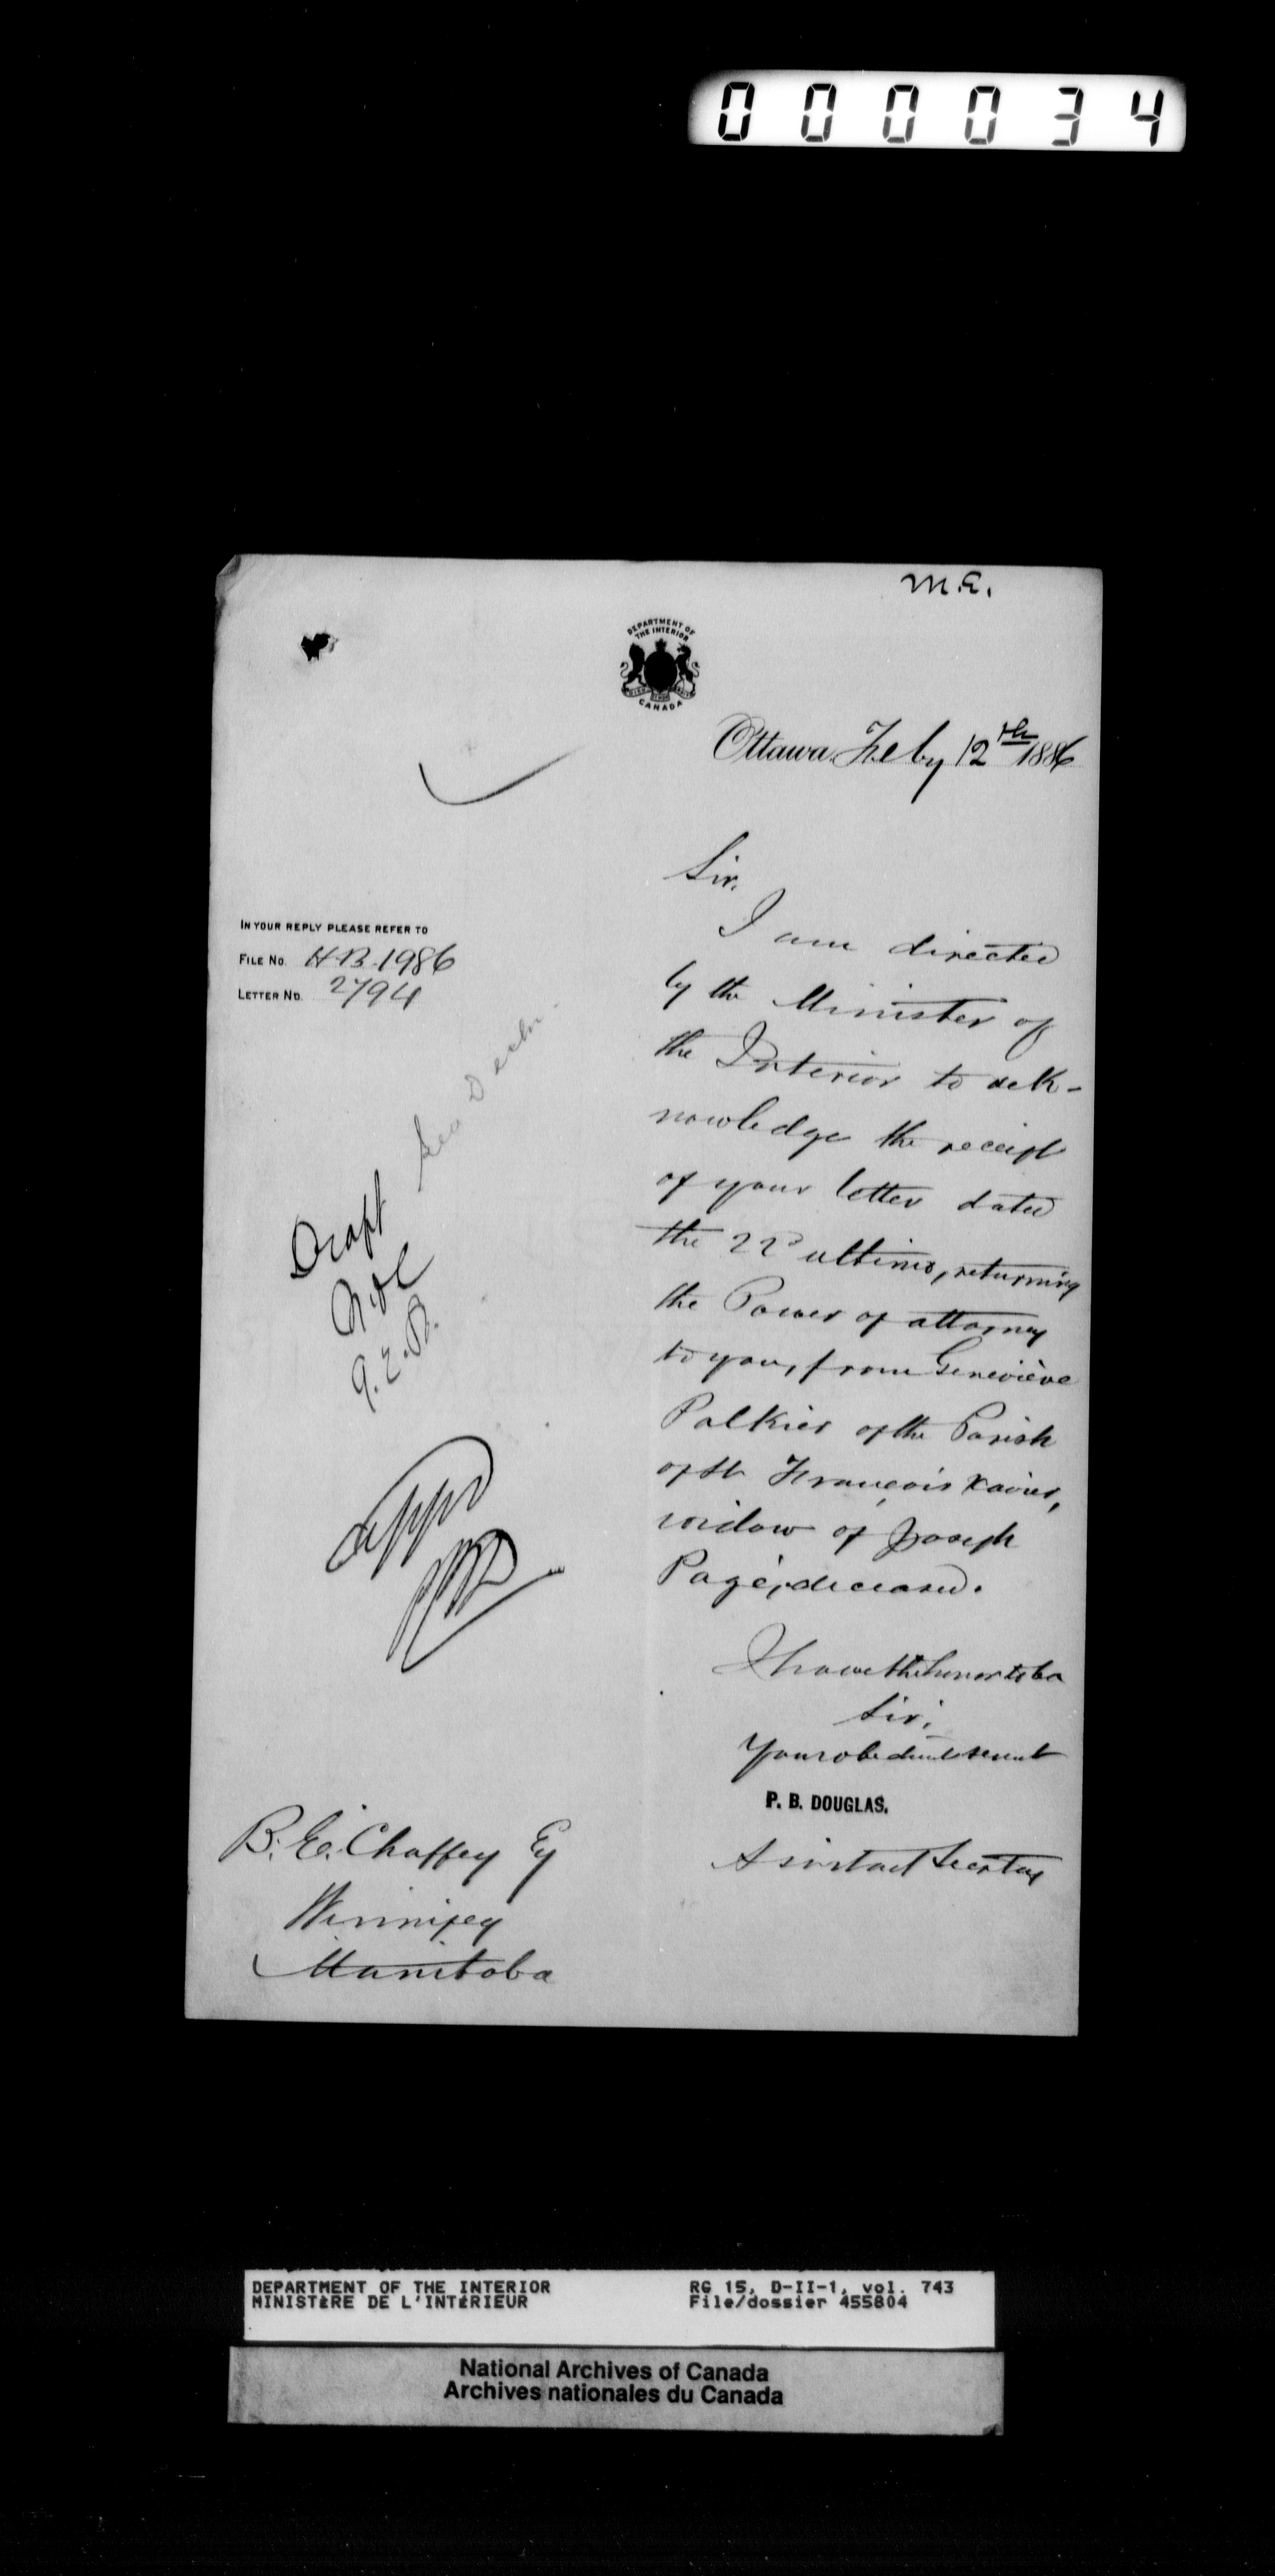 000034
M.E.
DEPARTMENT OF
THE INTERIOR
CANADA
Ottawa, Feby 12th 1886
Sir,
I am directed
IN YOUR REPLY PLEASE REFER TO
FILE No. H.B. 1986
LETTER No. 2794
by the Minister of
the Interior to ack-
nowledge the receipt
of your letter dated
the 22d ultimo, returning
the Power of attorney
to you, from Geneviève
Palkier of the Parish
of St François Xavier,
widow of Joseph
Pagé, deceased.
Draft
I have the honor to be
Sir,
Your obedient servant
P. B. DOUGLAS.
Assistant Secretary
B. E. Chaffey Esq
Winnipeg
Manitoba
DEPARTMENT OF THE INTERIOR
MINISTÈRE DE L'INTÉRIEUR
RG 15, D-II-1, vol. 743
File/dossier 455804
National Archives of Canada
Archives nationales du Canada